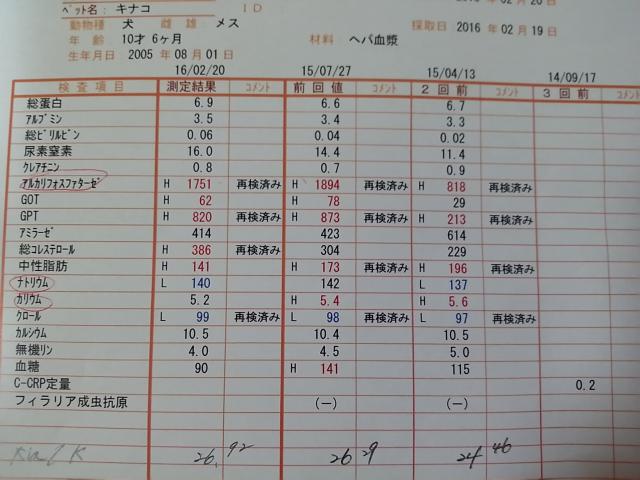 ペット名： キナコ ID
動物種 犬 雌雄： メス 採取日 2016 年 02 月 19 日
年齢 10才 6ヶ月 材料： ヘパ血漿
生年月日： 2005 年 08 月 01 日
16/02/20 15/07/27 15/04/13 14/09/17
検査項目 測定結果 コメント 前回値 コメント 2回前 コメント 3回前 コメント
総蛋白 6.9 6.6 6.7
アルブミン 3.5 3.4 3.3
総ビリルビン 0.06 0.04 0.02
尿素窒素 16.0 14.4 11.4
クレアチニン 0.8 0.7 0.9
アルカリフォスファターゼ H 1751 再検済み H 1894 再検済み H 818 再検済み
GOT H 62 H 78 29
GPT H 820 再検済み H 873 再検済み H 213 再検済み
アミラーゼ 414 423 614
総コレステロール H 386 再検済み 304 229
中性脂肪 H 141 H 173 再検済み H 196 再検済み
ナトリウム L 140 142 L 137
カリウム 5.2 H 5.4 H 5.6
クロール L 99 再検済み L 98 再検済み L 97 再検済み
カルシウム 10.5 10.4 10.5
無機リン 4.0 4.5 5.0
血糖 90 H 141 115
C-CRP定量 0.2
フィラリア成虫抗原 (－) (－)
Na/K 26.92 26 29 24 46